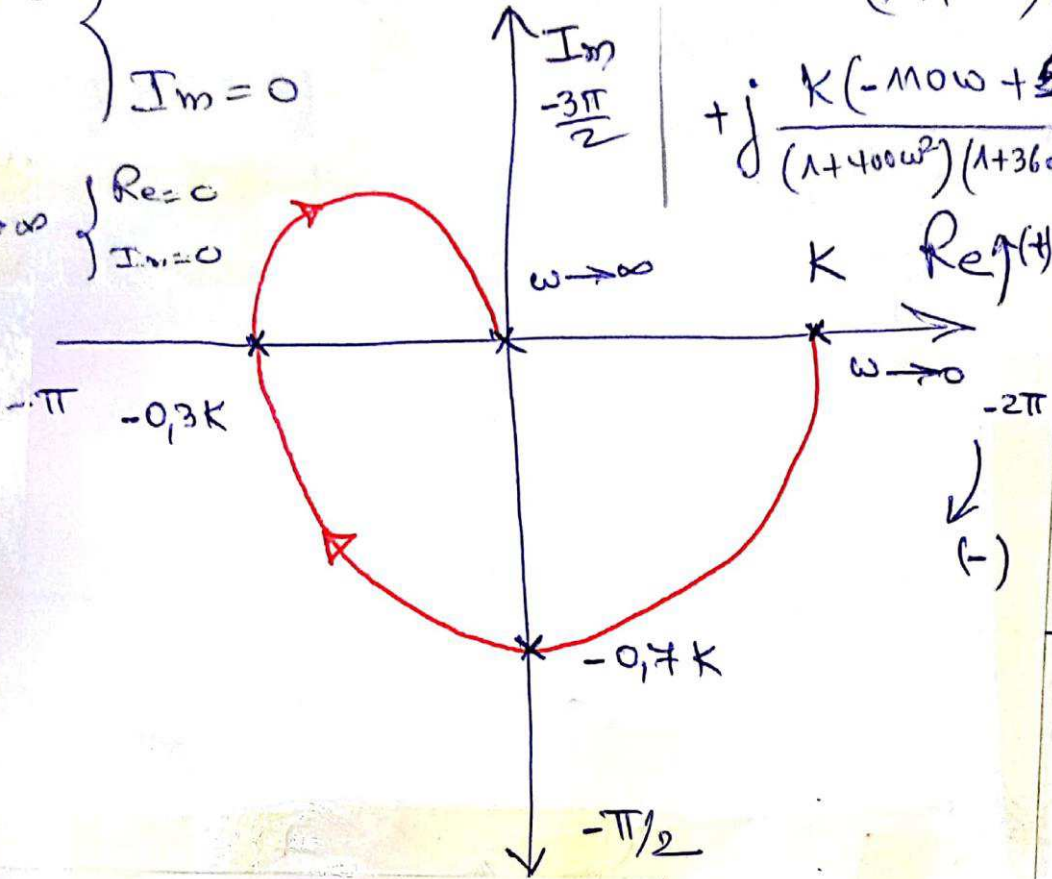 Im = 0
Im
-3π/2
+j K(-110ω +
(1+400ω²)(1+36
∞ { Re=0
Im=0
ω→∞
K
Re
ω→0
-π
-0,3K
-2π
(-)
-0,7K
-π/2